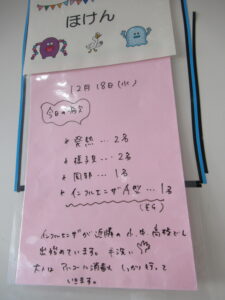 ほけん
12月18日(水)
今日の欠
* 発熱 … 2名
* 様子見 … 2名
* 1名
* インフルエンザA型 … 1名
インフルエンザが近隣の小、中、高校でも
出始めています。手洗い
大人は アルコール消毒も しっかり行って
いきます。